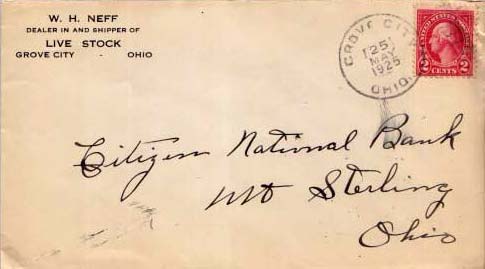 W. H. NEFF
DEALER IN AND SHIPPER OF
LIVE STOCK
GROVE CITY - OHIO
GROVE CITY
25
MAY
1925
OHIO.
UNITED STATES POSTAGE
2 CENTS 2
Citizen National Bank
Mt Sterling
Ohio